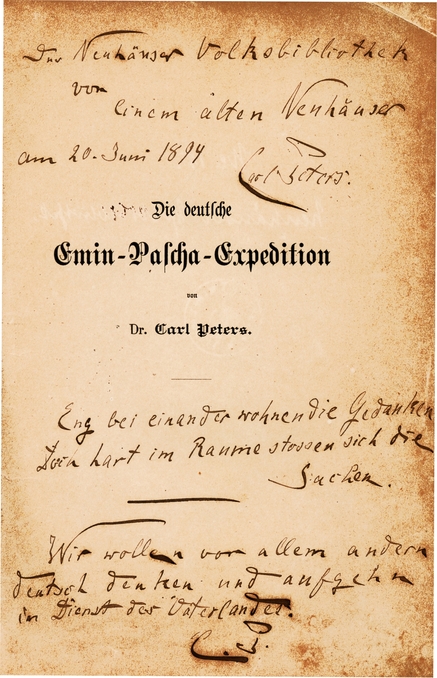 Der Neuhäuser Volksbibliothek
von
einem alten Neuhäuser
am 20. Juni 1894
Carl Peters.
Die deutsche
Emin-Pascha-Expedition
von
Dr. Carl Peters.
Eng bei einander wohnen die Gedanken
Doch hart im Raume stossen sich die
Sachen.
Wir wollen vor allem andern
deutsch denken und aufgehn
im Dienst des Vaterlandes.
C. P.